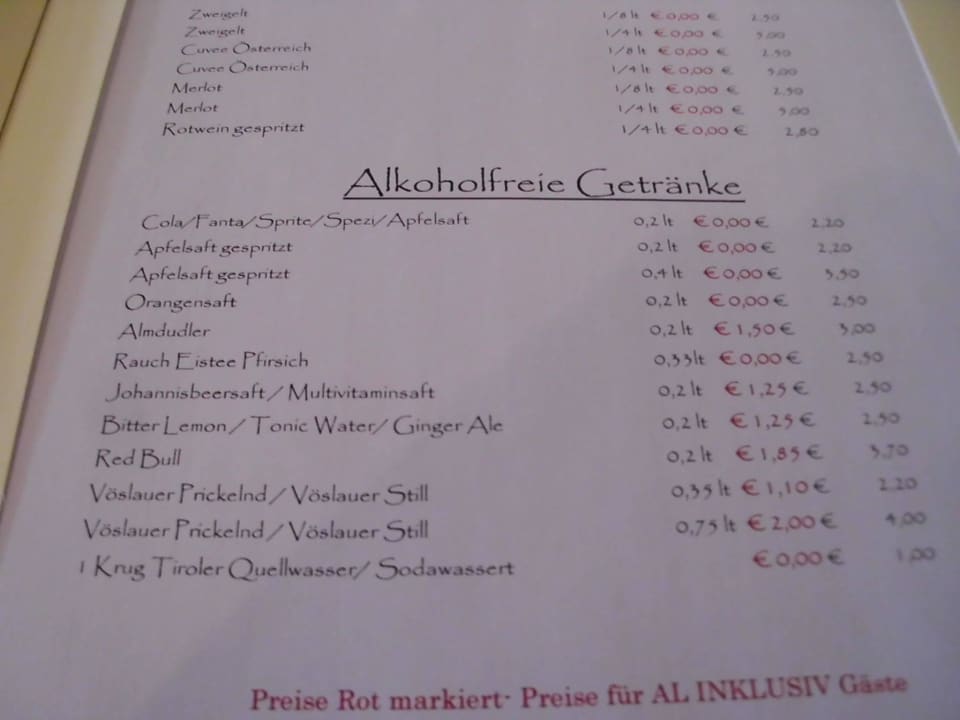 Zweigelt 1/8 lt € 0,00 € 2,50
Zweigelt 1/4 lt € 0,00 € 5,00
Cuvee Österreich 1/8 lt € 0,00 € 2,50
Cuvee Österreich 1/4 lt € 0,00 € 5,00
Merlot 1/8 lt € 0,00 € 2,50
Merlot 1/4 lt € 0,00 € 5,00
Rotwein gespritzt 1/4 lt € 0,00 € 2,80
Alkoholfreie Getränke
Cola/Fanta/Sprite/Spezi/Apfelsaft 0,2 lt € 0,00 € 2,20
Apfelsaft gespritzt 0,2 lt € 0,00 € 2,20
Apfelsaft gespritzt 0,4 lt € 0,00 € 3,50
Orangensaft 0,2 lt € 0,00 € 2,50
Almdudler 0,2 lt € 1,50 € 3,00
Rauch Eistee Pfirsich 0,33 lt € 0,00 € 2,50
Johannisbeersaft / Multivitaminsaft 0,2 lt € 1,25 € 2,50
Bitter Lemon / Tonic Water/ Ginger Ale 0,2 lt € 1,25 € 2,50
Red Bull 0,2 lt € 1,85 € 3,70
Vöslauer Prickelnd / Vöslauer Still 0,35 lt € 1,10 € 2,20
Vöslauer Prickelnd / Vöslauer Still 0,75 lt € 2,00 € 4,00
1 Krug Tiroler Quellwasser/ Sodawassert € 0,00 € 1,00
Preise Rot markiert- Preise für AL INKLUSIV Gäste